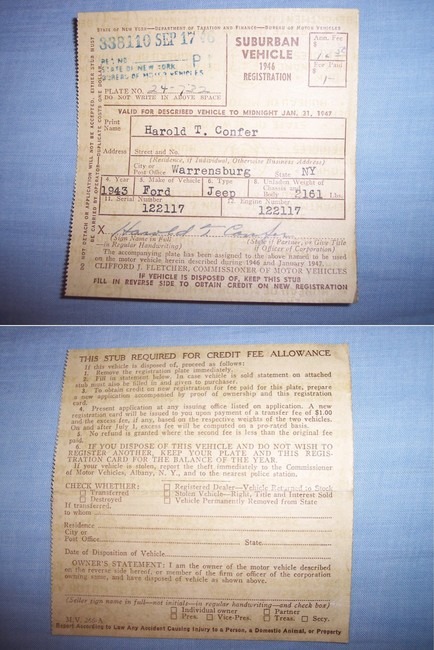 STATE OF NEW YORK—DEPARTMENT OF TAXATION AND FINANCE—BUREAU OF MOTOR VEHICLES
338110 SEP 17
STATE OF NEW YORK P
BUREAU OF MOTOR VEHICLES
PLATE NO. 24-722
DO NOT WRITE IN ABOVE SPACE
SUBURBAN
VEHICLE
1946
REGISTRATION
Ann. Fee
$
Fee Paid
$
VALID FOR DESCRIBED VEHICLE TO MIDNIGHT JAN. 31, 1947
Print
Name Harold T. Confer
Address Street and No.
(Residence, if Individual, Otherwise Business Address)
City or
Post Office Warrensburg State NY
4. Year 5. Make of Vehicle 6. Type 8. Unladen Weight of
Chassis and
Body
1943 Ford Jeep 2161 Lbs.
11. Serial Number 12. Engine Number
122117 122117
X Harold T. Confer
(Sign Name in Full (State if Partner, or Give Title
in Regular Handwriting) if Officer of Corporation)
The accompanying plate has been assigned to the above named to be used
on the motor vehicle herein described during 1946 and January 1947.
CLIFFORD J. FLETCHER, COMMISSIONER OF MOTOR VEHICLES
IF VEHICLE IS DISPOSED OF, KEEP THIS STUB
FILL IN REVERSE SIDE TO OBTAIN CREDIT ON NEW REGISTRATION
THIS STUB REQUIRED FOR CREDIT FEE ALLOWANCE
If this vehicle is disposed of, proceed as follows:
1. Remove the registration plate immediately.
2. Fill in statement below. In case vehicle is sold statement on attached
stub must also be filled in and given to purchaser.
3. To obtain credit on new registration for fee paid for this plate, prepare
a new application accompanied by proof of ownership and this registration
card.
4. Present application at any issuing office listed on application. A new
registration card will be issued to you upon payment of a transfer fee of $1.00
and the excess fee, if any, based on the respective weights of the two vehicles.
On and after July 1, excess fee will be computed on a pro-rated basis.
5. No refund is granted where the second fee is less than the original fee
paid.
6. IF YOU DISPOSE OF THIS VEHICLE AND DO NOT WISH TO
REGISTER ANOTHER, KEEP YOUR PLATE AND THIS REGIS-
TRATION CARD FOR THE BALANCE OF THE YEAR.
If your vehicle is stolen, report the theft immediately to the Commissioner
of Motor Vehicles, Albany, N. Y., and to the nearest police station.
CHECK WHETHER: Registered Dealer—Vehicle Returned to Stock
Transferred Stolen Vehicle—Right, Title and Interest Sold
Destroyed Vehicle Permanently Removed from State
If transferred,
to whom
Residence
City or
Post Office State
Date of Disposition of Vehicle
OWNER'S STATEMENT: I am the owner of the motor vehicle described
on the reverse side hereof, or member of the firm or officer of the corporation
owning same, and have disposed of vehicle as shown above.
(Seller sign name in full—not initials—in regular handwriting—and check box)
Individual owner Partner
Pres. Vice-Pres. Treas. Secy.
Report According to Law Any Accident Causing Injury to a Person, a Domestic Animal, or Property